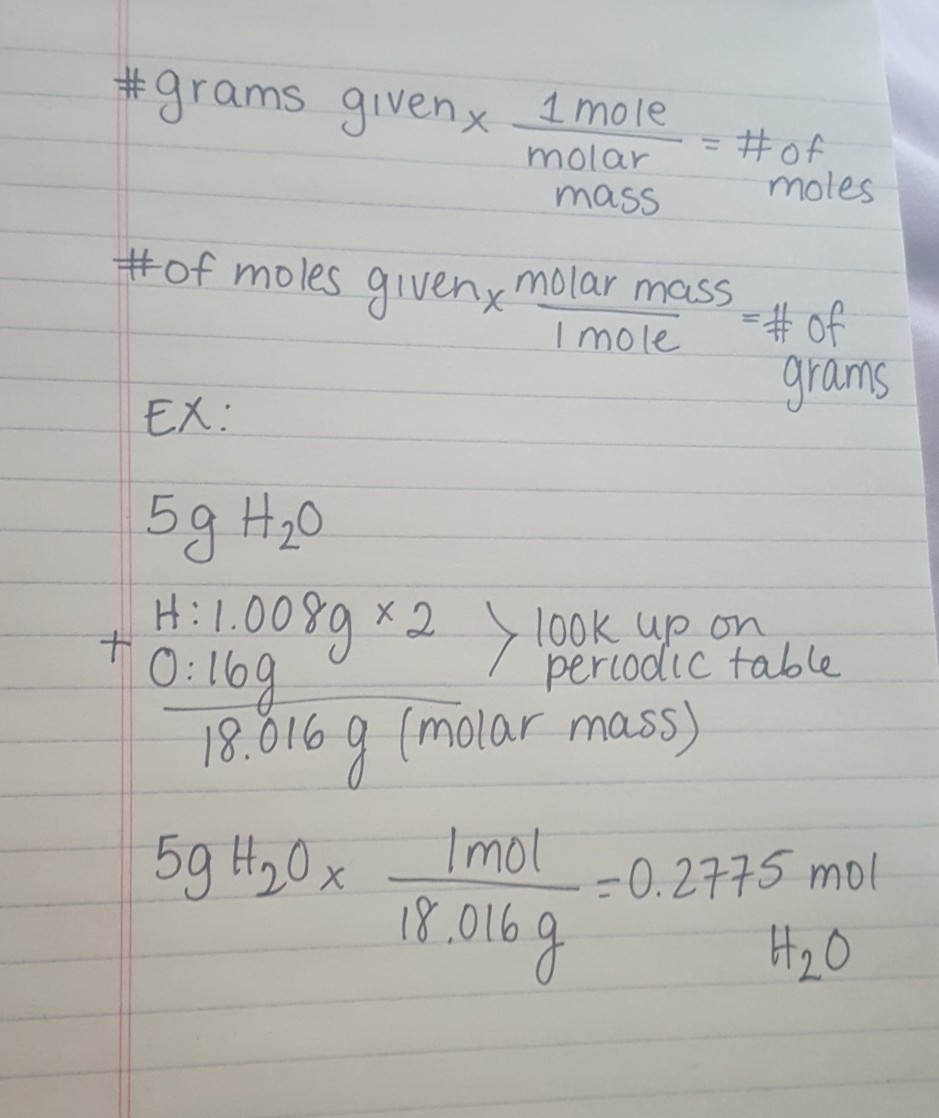 #grams given x 1 mole / molar mass = # of moles
#of moles given x molar mass / 1 mole = # of grams
EX:
5g H₂O
H: 1.008g × 2 > look up on periodic table
+ O: 16g
18.016 g (molar mass)
5g H₂O x 1 mol / 18.016 g = 0.2775 mol H₂O